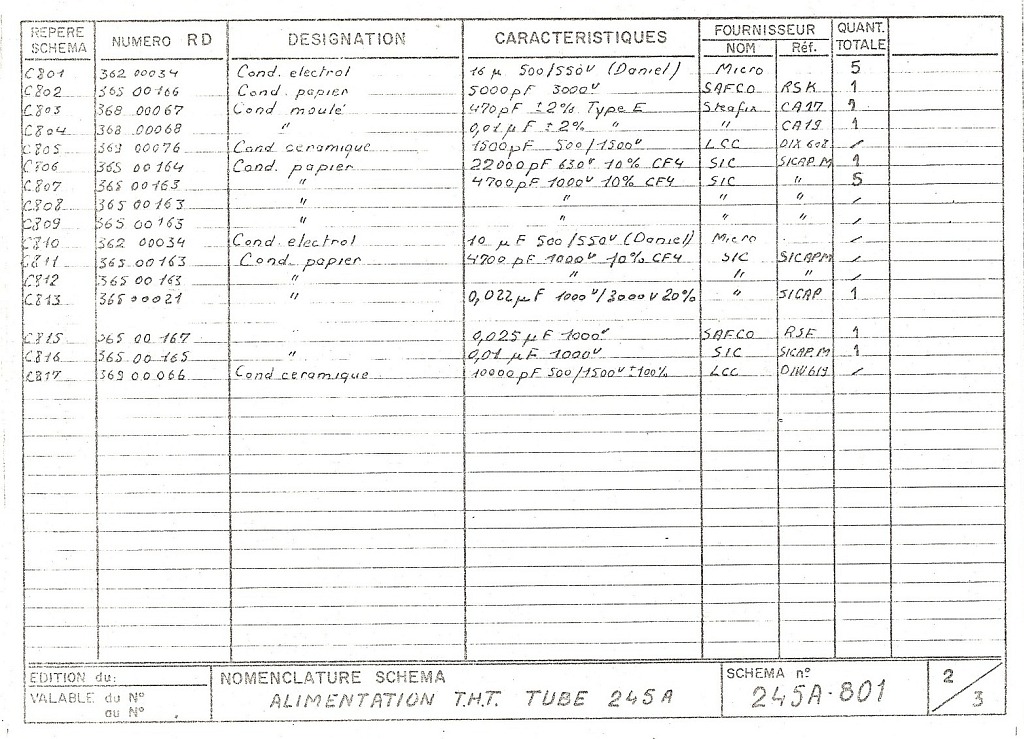 REPERE SCHEMA NUMERO RD DESIGNATION CARACTERISTIQUES FOURNISSEUR NOM Réf. QUANT. TOTALE
C801 362 00034 Cond. electrol 16 µ 500/550V (Daniel) Micro 5
C802 365 00166 Cond. papier 5000pF 3000V SAFCO RSK 1
C803 368 00067 Cond moulé 470pF ±2% Type E Steafix CA17 1
C804 368 00068 " 0,01µF ±2% " " CA19 1
C805 369 00076 Cond ceramique 1500pF 500/1500V LCC DIX 602 /
C806 365 00164 Cond. papier 22000pF 630V 10% CF4 SIC SICAP.M 1
C807 365 00163 " 4700pF 1000V 10% CF4 SIC " 5
C808 365 00163 " " " " /
C809 365 00163 " " " " /
C810 362 00034 Cond electrol 10 µF 500/550V (Daniel) Micro /
C811 365 00163 Cond papier 4700 pF 1000V 10% CF4 SIC SICAPM /
C812 365 00163 " " " " /
C813 365 00021 " 0,022µF 1000V/3000V 20% " SICAP 1
C815 365 00 167 0,025 µF 1000V SAFCO RSE 1
C816 365 00 165 " 0,01 µF 1000V SIC SICAP.M 1
C817 369 00 066 Cond ceramique 10000pF 500/1500V ±100% LCC DIW619 /
EDITION du: NOMENCLATURE SCHEMA SCHEMA nº 2/3
VALABLE du Nº ALIMENTATION T.H.T. TUBE 245A 245A-801
au Nº